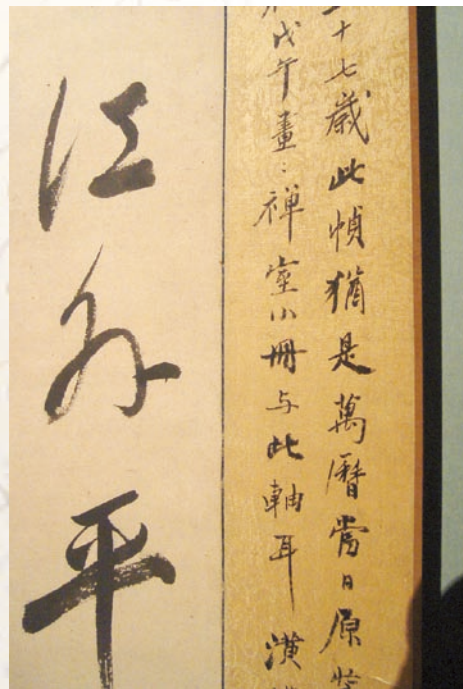 十七歲此幀猶是萬曆當日原裝
戊午畫禪室小冊与此軸耳潢
江外平